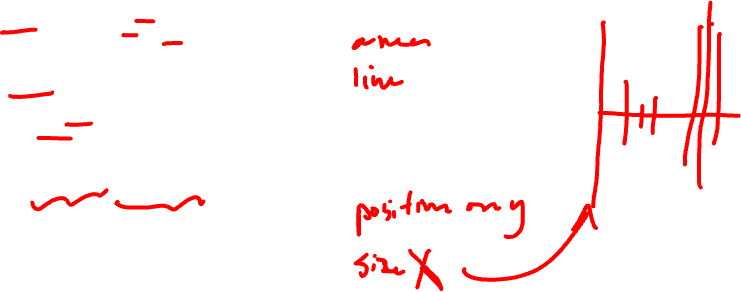 area
line
position only
size X